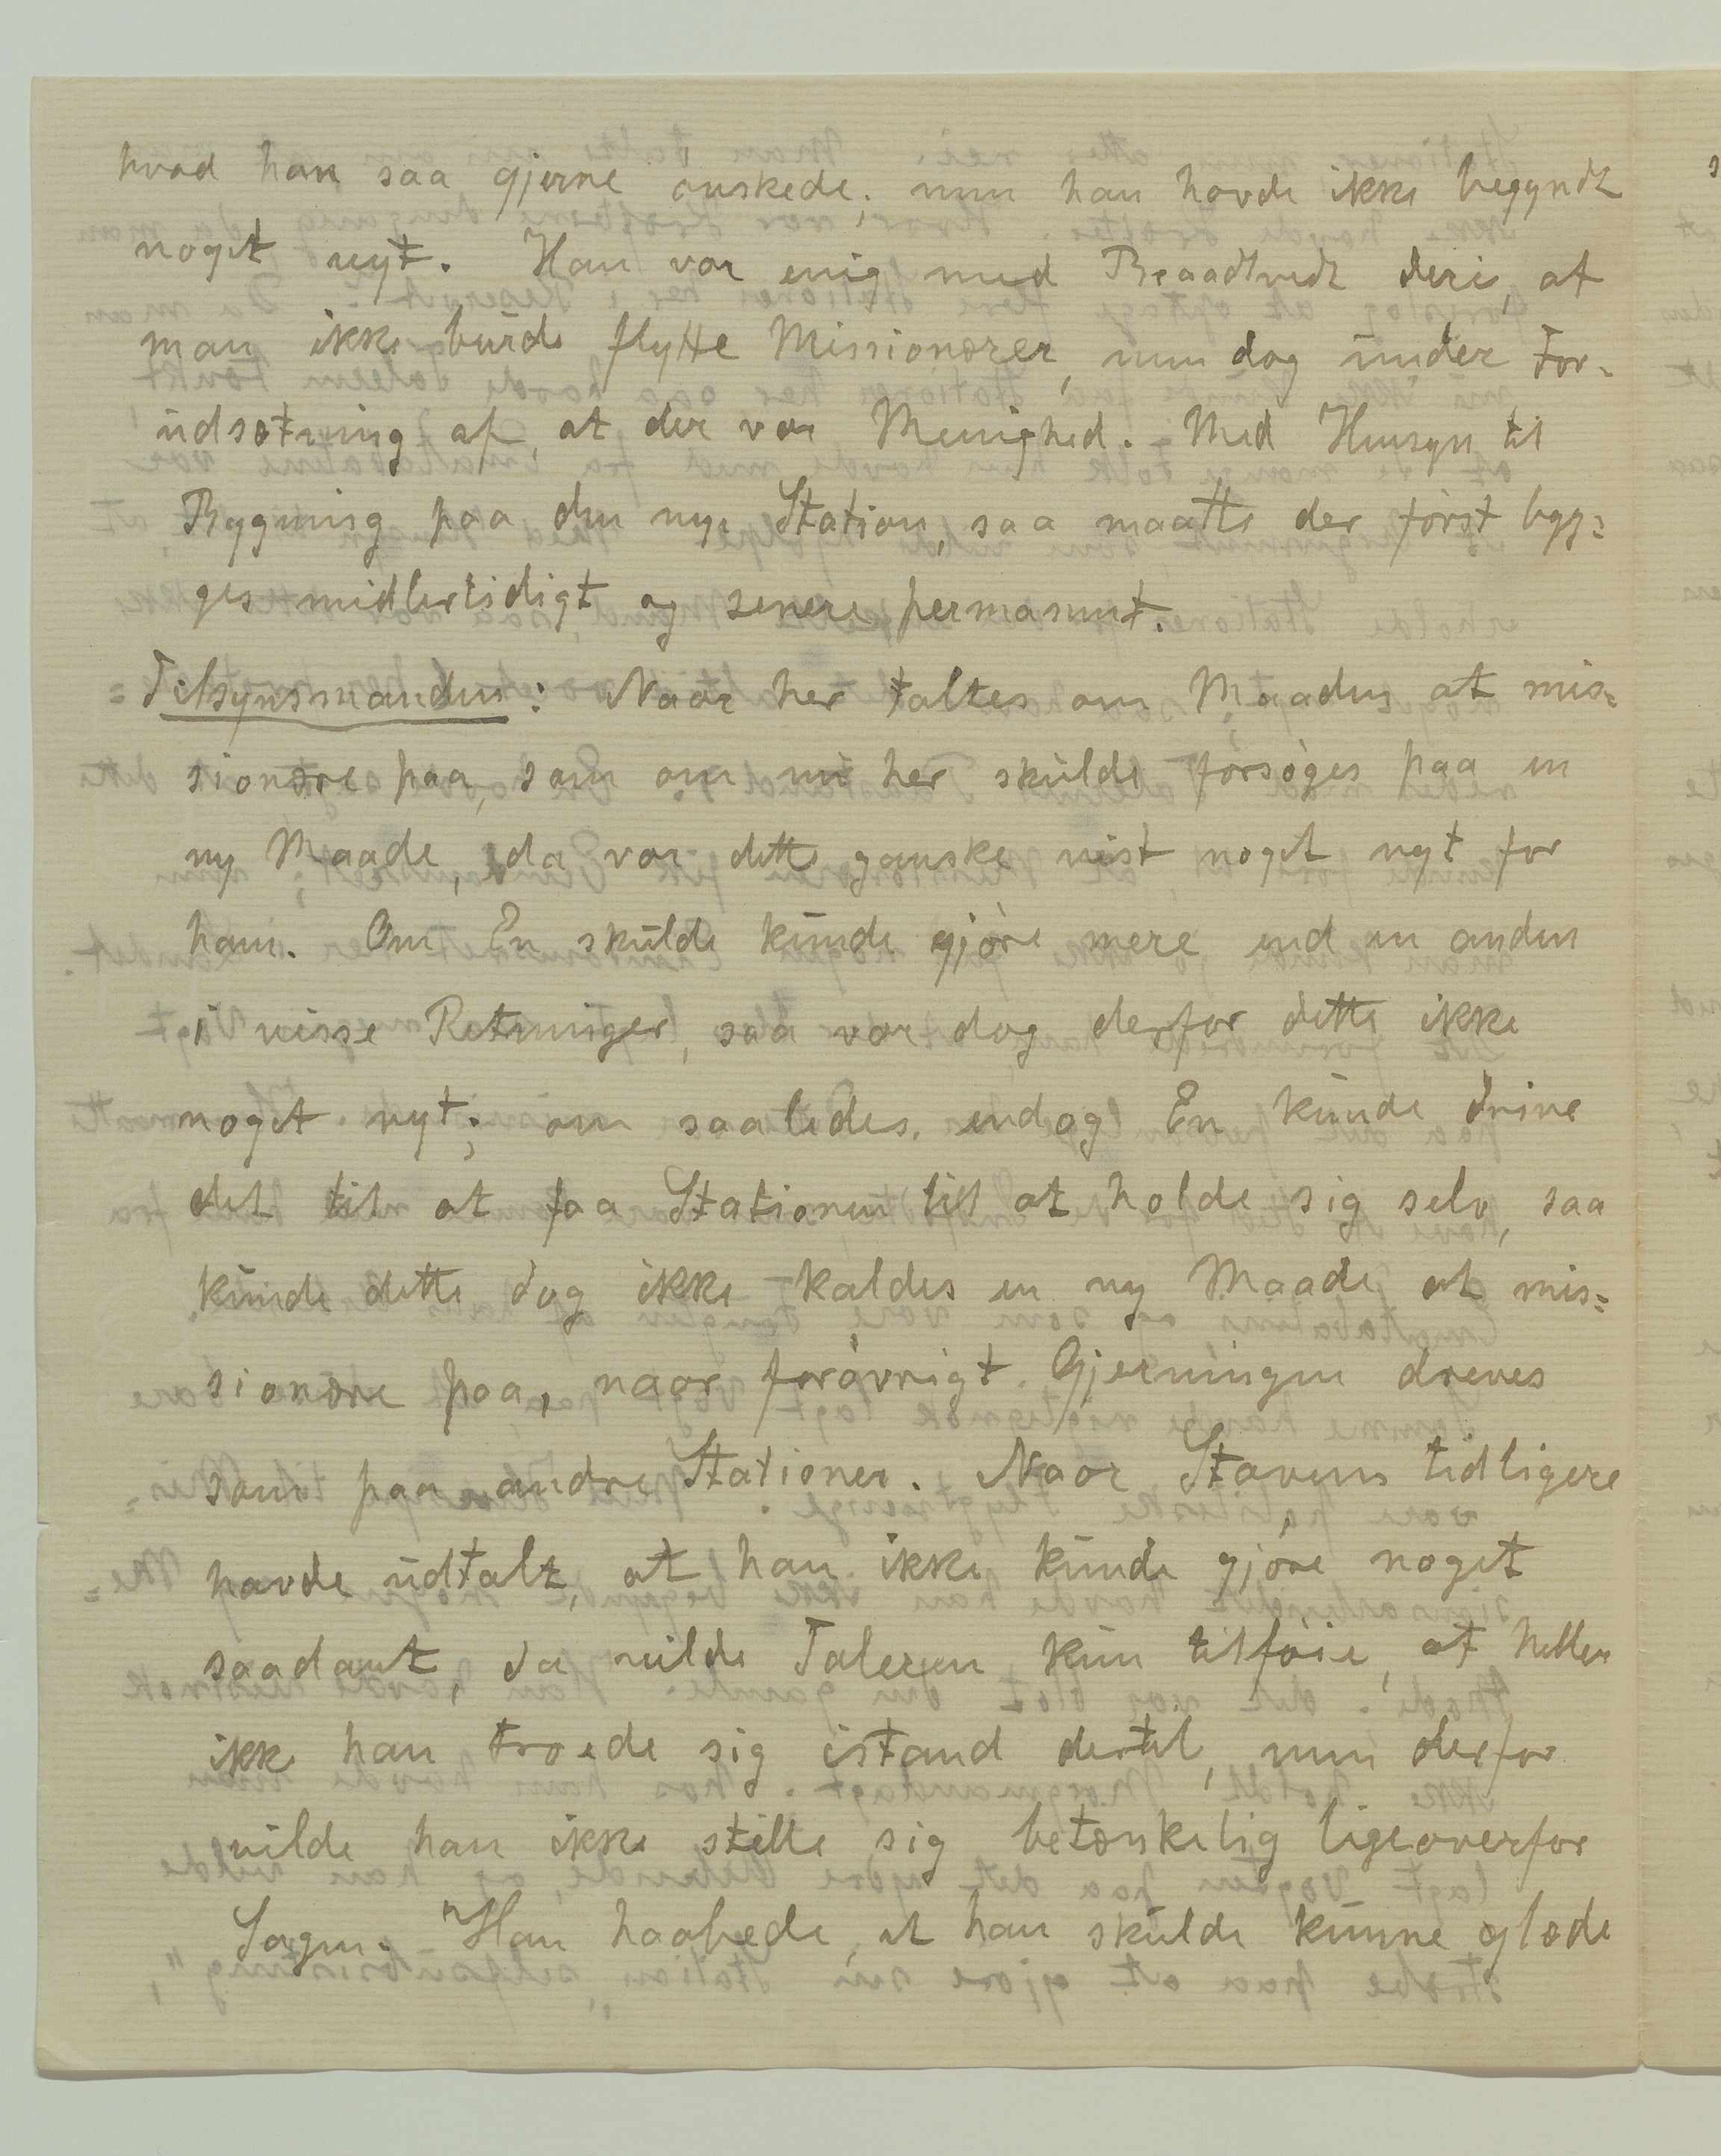 hvad han saa gjerne ønskede; men han havde ikke begyndt
noget nyt. Han var enig med Braadtvedt deri, at
man ikke burde flytte Missionærer, men dog under For-
udsætning af, at der var Menighed. Med Hensyn til
Bygning paa den nye Station, saa maatte der først byg=
ges midlertidigt og senere permanent.
Tilsynsmanden: Naar her taltes om Maaden at mis=
sionære paa, som om nu her skulde forsøges paa en
ny Maade, da var dette ganske vist noget nyt for
ham. Om En skulde kunde gjøre mere end en anden
i visse Retninger, saa var dog derfor dette ikke
noget nyt; om saaledes endog En kunde drive
det til at faa Stationen til at holde sig selv, saa
kunde dette dog ikke kaldes en ny Maade at mis=
sionære paa, naar forøvrigt Gjerningen dreves
som paa andre Stationer. Naar Stavem tidligere
havde udtalt, at han ikke kunde gjøre noget
saadant, da vilde Taleren kun tilføie, at heller
ikke han troede sig istand dertil, men derfor
vilde han ikke stille sig betænkelig ligeoverfor
Sagen. "Han haabede, at han skulde kunne glæde